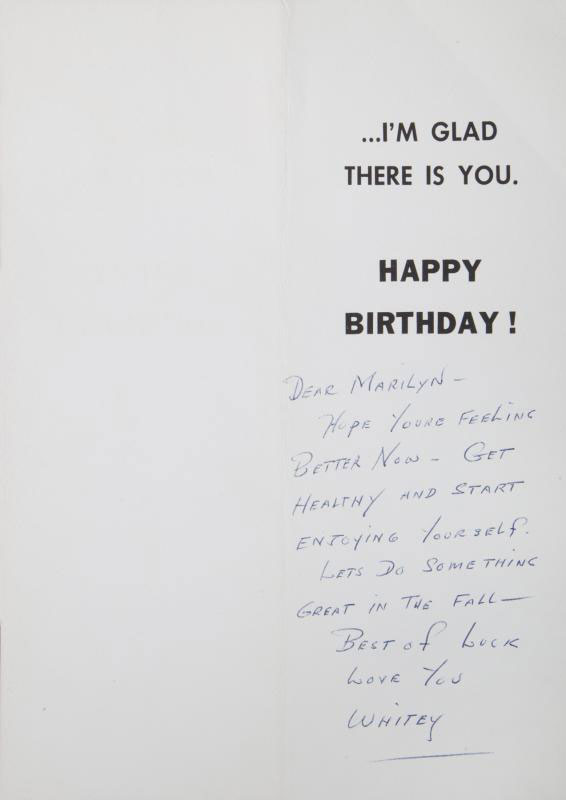 ...I'M GLAD
THERE IS YOU.
HAPPY
BIRTHDAY!
DEAR MARILYN —
HOPE YOURE FEELING
BETTER NOW — GET
HEALTHY AND START
ENJOYING YOURSELF.
LETS DO SOMETHING
GREAT IN THE FALL —
BEST OF LUCK
LOVE YOU
WHITEY